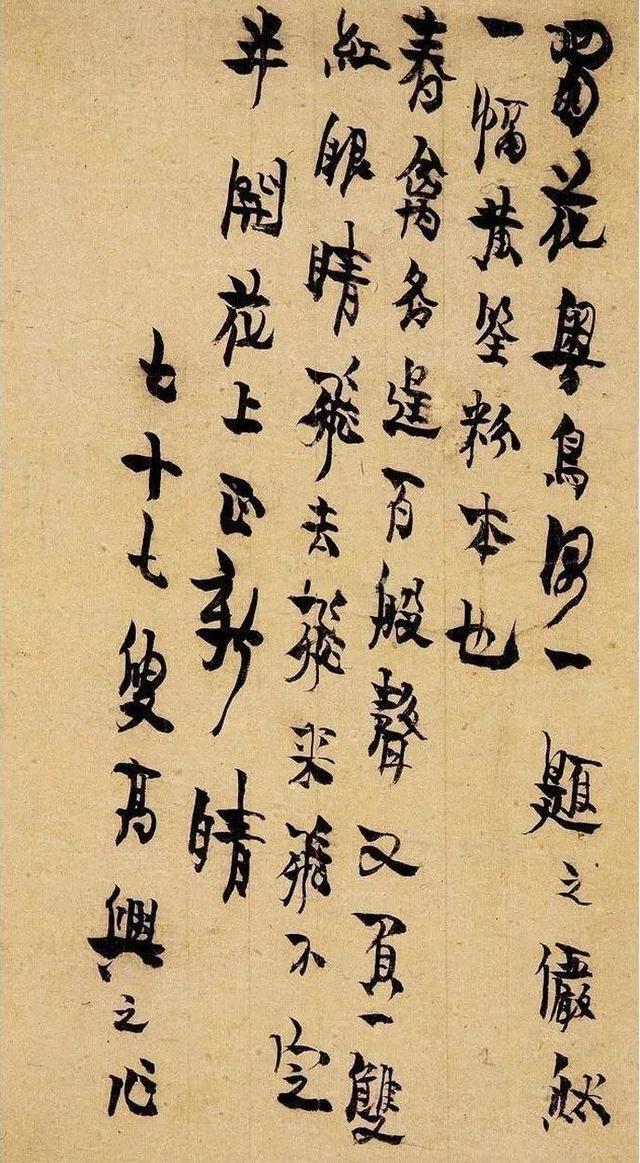 蜀花粤鳥一題之儼然
一幅黃筌粉本也
春禽各逞百般聲又一雙
紅眼睛飛去飛來飛不定
半開花上正新晴
七十七叟高興之作